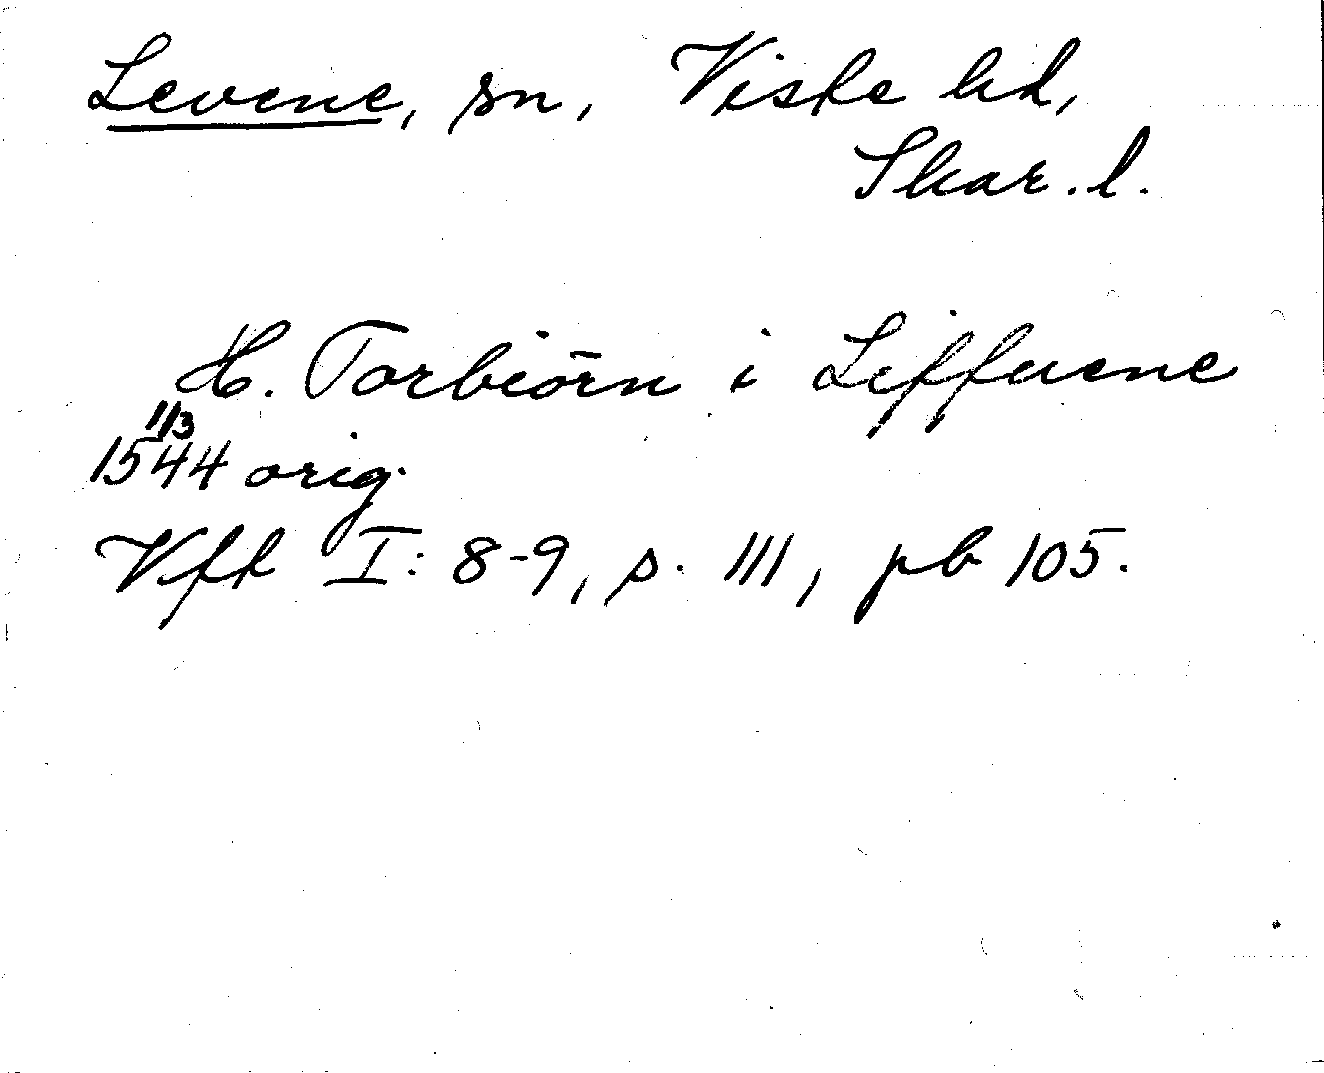 Levene, sn, Viske hd,
Skar. l.
H. Torbiörn i Leffuene
11/3
1544 orig.
Vft I: 8-9, s. 111, pb 105.